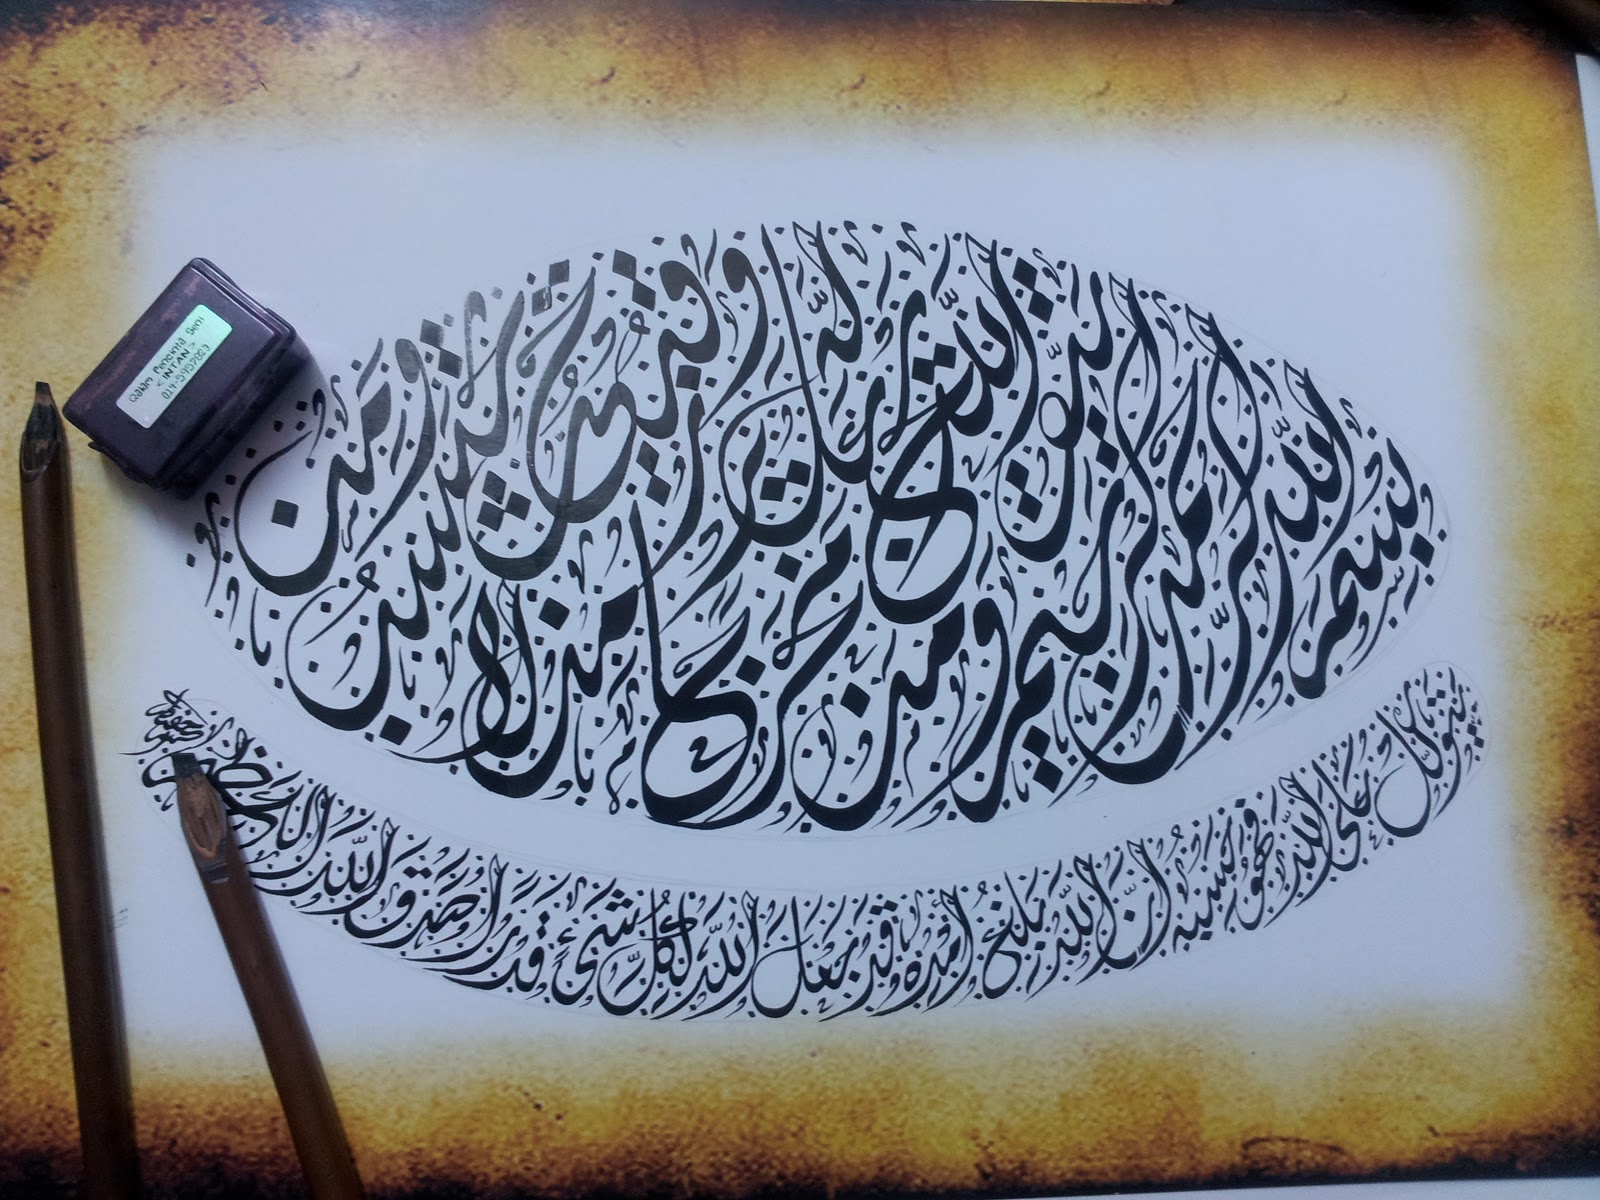 بسم الله الرحمن الرحيم ومن يتق الله يجعل له مخرجا ويرزقه من حيث لا يحتسب ومن
يتوكل على الله فهو حسبه إن الله بالغ أمره قد جعل الله لكل شيء قدرا صدق الله العظيم
Qalam Pencinta Seni
<INTAN>
014-5957023